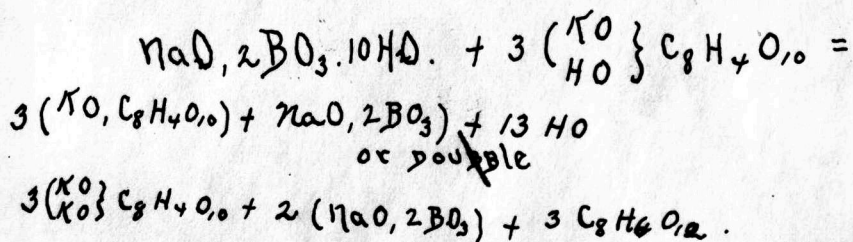 NaO, 2BO₃.10HO. + 3 (KO HO } C₈H₄O₁₀ =
3 (KO, C₈H₄O₁₀) + NaO, 2BO₃) + 13 HO
or Double
3(KO KO} C₈H₄O₁₀ + 2 (NaO, 2BO₃) + 3 C₈H₆O₁₂.